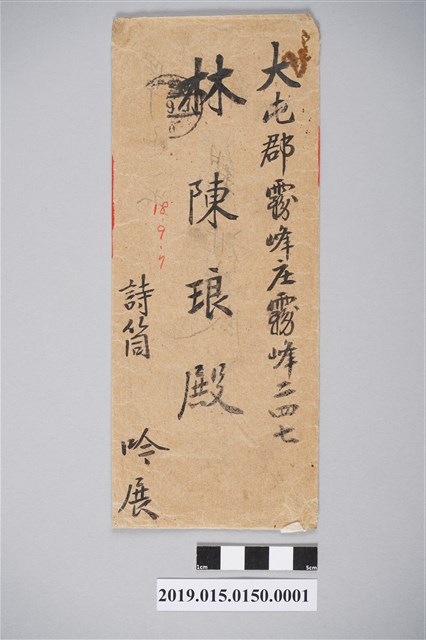 大屯郡霧峰庄霧峰二四七
林陳琅殿
18.9.7
詩筒 吟展
1cm 5cm
2019.015.0150.0001